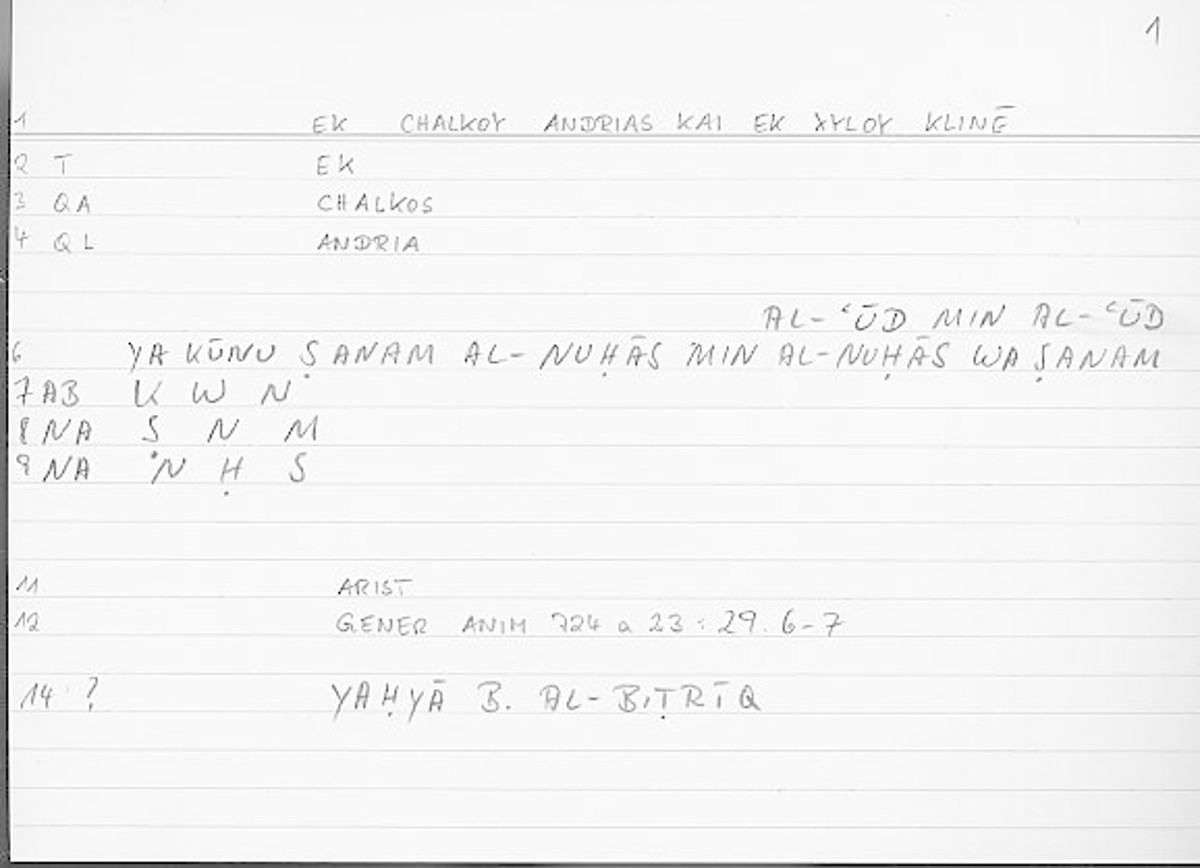 1
1 EK CHALKOY ANDRIAS KAI EK XYLOY KLINĒ
2 T EK
3 QA CHALKOS
4 QL ANDRIA
AL-ʿŪD MIN AL-ʿŪD
6 YAKŪNU ṢANAM AL-NUḤĀS MIN AL-NUḤĀS WAṢANAM
7 AB K W N
8 NA Ṣ N M
9 NA N Ḥ S
11 ARIST
12 GENER ANIM 724 a 23 : 29.6-7
14 ? YAḤYĀ B. AL-BIṬRĪQ